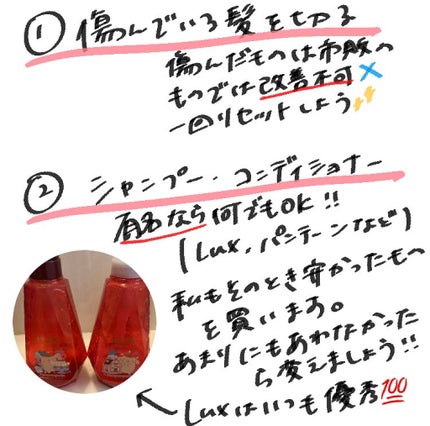 ① 傷んでいる髪を切る
傷んだものは市販の
ものでは改善不可×
一回リセットしよう
② シャンプー・コンディショナー
有名なら何でもOK!!
(Lux、パンテーンなど)
私もそのとき安かったもの
を買います。
あまりにもあわなかった
ら変えましょう!!
Luxはいつも優秀💯